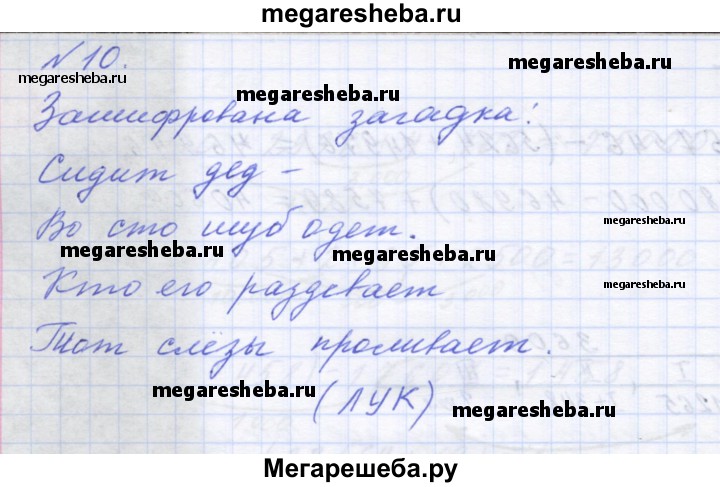 megaresheba.ru
№10.
megaresheba.ru
megaresheba.ru
megaresheba.ru
Зашифрована загадка:
Сидит дед –
megaresheba.ru
Во сто шуб одет.
megaresheba.ru
megaresheba.ru
Кто его раздевает
Тот слёзы проливает.
megaresheba.ru
megaresheba.ru
(ЛУК)
Мегарешеба.ру